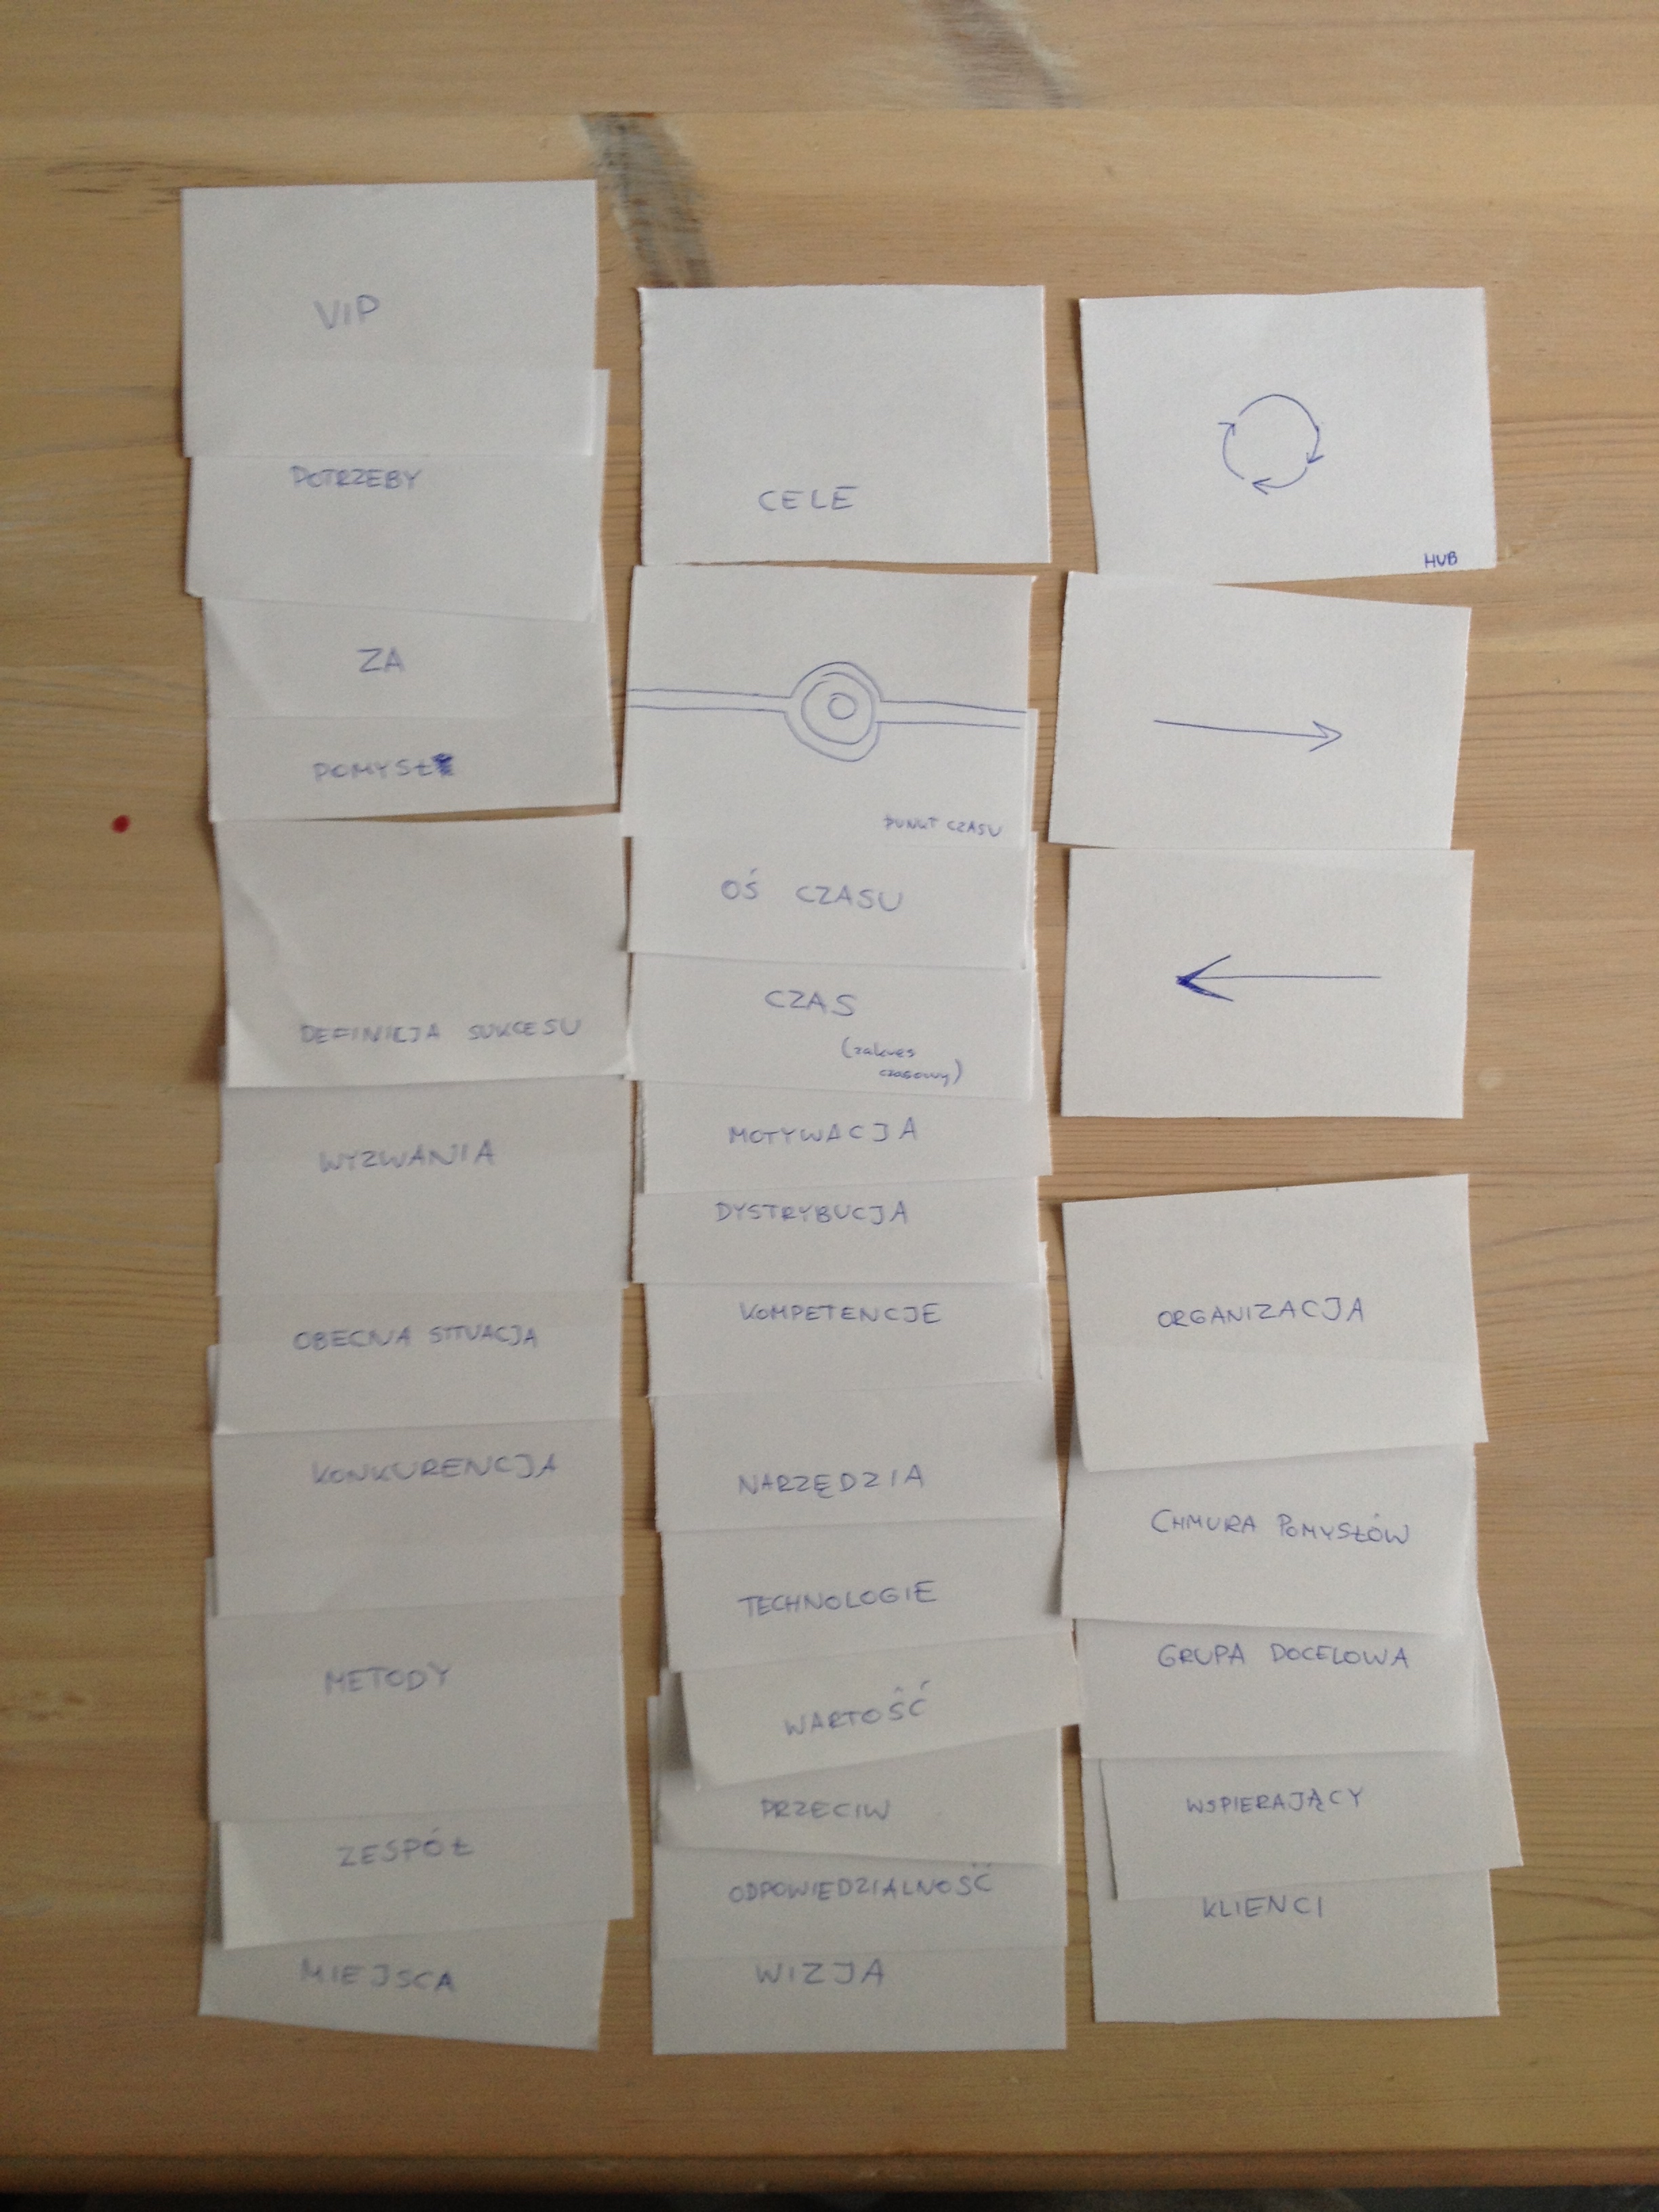 VIP
POTRZEBY
ZA
POMYSŁ
DEFINICJA SUKCESU
WYZWANIA
OBECNA SYTUACJA
KONKURENCJA
METODY
ZESPÓŁ
MIEJSCA
CELE
PUNKT CZASU
OŚ CZASU
CZAS
(zakres
czasowy)
MOTYWACJA
DYSTRYBUCJA
KOMPETENCJE
NARZĘDZIA
TECHNOLOGIE
WARTOŚĆ
PRZECIW
ODPOWIEDZIALNOŚĆ
WIZJA
HUB
ORGANIZACJA
CHMURA POMYSŁÓW
GRUPA DOCELOWA
WSPIERAJĄCY
KLIENCI